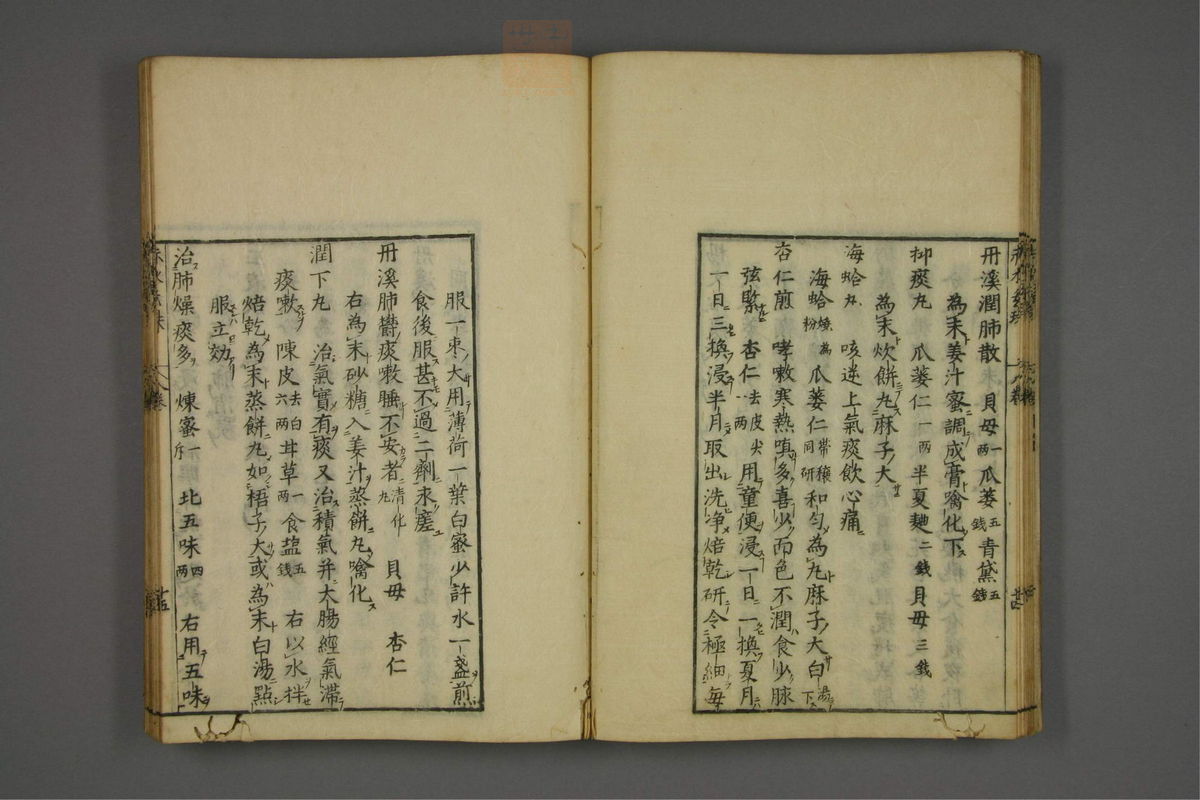 丹溪潤肺散 貝母一両 瓜蔞五銭 青黛五銭
為末姜汁蜜調成膏噙化下
抑痰丸 瓜蔞仁一両 半夏麯二銭 貝母三銭
為末炊餅丸麻子大
海蛤丸 咳逆上氣痰飲心痛
海蛤焼為粉 瓜蔞仁帯穰同研 和匀為丸麻子大白湯下
杏仁煎 哮嗽寒熱嗔多喜少面色不潤食少脉
弦緊 杏仁去皮尖八両 用童便浸一日一換夏月
一日三換浸半月取出洗浄焙乾研令極細毎
服一棗大用薄荷一葉白蜜少許水一盞煎
食後服甚不過二剤来瘥
丹溪肺欝痰嗽睡不安者清化丸 貝母 杏仁
右為末砂糖入姜汁蒸餅丸噙化
潤下丸 治氣實有痰又治積氣并大腸經氣滞
痰嗽 陳皮去白六両 甘草一両 食塩五銭 右以水拌
焙乾為末蒸餅丸如梧子大或為末白湯點
服立効
治肺燥痰多 煉蜜一斤 北五味四両 右用五味